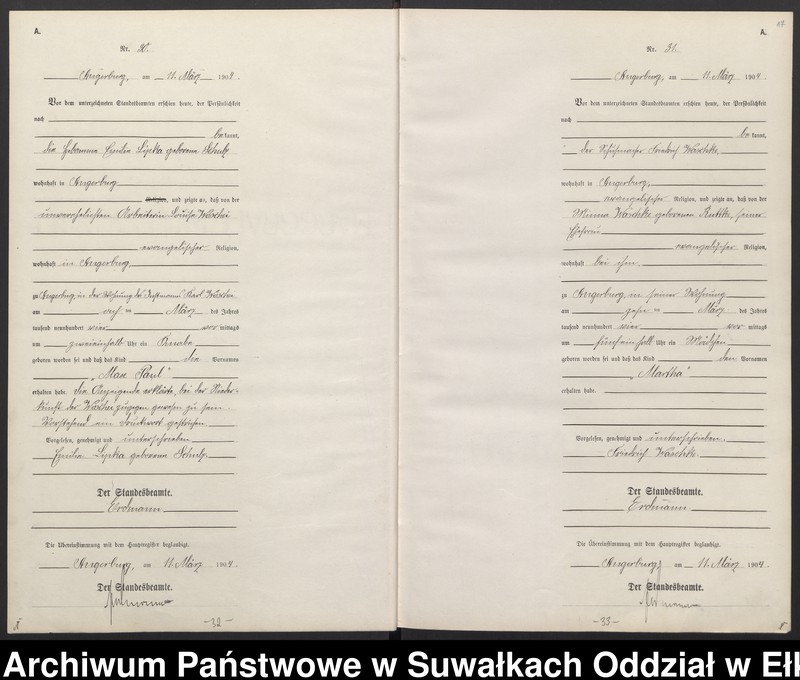 A.
Nr. 30.
Angerburg, am 11. März 1904.
Vor dem unterzeichneten Standesbeamten erschien heute, der Persönlichkeit
nach
be kannt,
die Hebamme Emilie Lipka geborene Schulz
wohnhaft in Angerburg
Religion, und zeigte an, daß von der
unverehelichten Arbeiterin Louise
evangelischer Religion,
wohnhaft in Angerburg
zu Angerburg, in der Wohnung des Instmann Karl
am acht ten März des Jahres
tausend neunhundert vier vor mittags
um zweieinhalb Uhr ein Knabe
geboren worden sei und daß das Kind die Vornamen
„Max Paul"
erhalten habe. Die Anzeigende erklärte, bei der Nieder-
kunft der zugegen gewesen zu sein.
Vorstehend ein Druckwort gestrichen
Vorgelesen, genehmigt und unterschrieben
Emilie Lipka geborene Schulz
Der Standesbeamte.
Erdmann
Die Übereinstimmung mit dem Hauptregister beglaubigt.
Angerburg, am 11. März 1904
Der Standesbeamte.
Erdmann
-32-
A.
Nr. 31.
Angerburg, am 11. März 1904.
Vor dem unterzeichneten Standesbeamten erschien heute, der Persönlichkeit
nach
be kannt,
der Schuhmacher Friedrich Waschke
wohnhaft in Angerburg,
evangelischer Religion, und zeigte an, daß von der
Minna Waschke geborenen seiner
Ehefrau
evangelischer Religion,
wohnhaft bei ihm
zu Angerburg in seiner Wohnung
am zehn ten März des Jahres
tausend neunhundert vier vor mittags
um fünfeinhalb Uhr ein Mädchen
geboren worden sei und daß das Kind den Vornamen
„Martha"
erhalten habe.
Vorgelesen, genehmigt und unterschrieben.
Friedrich Waschke
Der Standesbeamte.
Erdmann
Die Übereinstimmung mit dem Hauptregister beglaubigt.
Angerburg, am 11. März 1904.
Der Standesbeamte.
Erdmann
-33-
Archiwum Państwowe w Suwałkach Oddział w Ełk